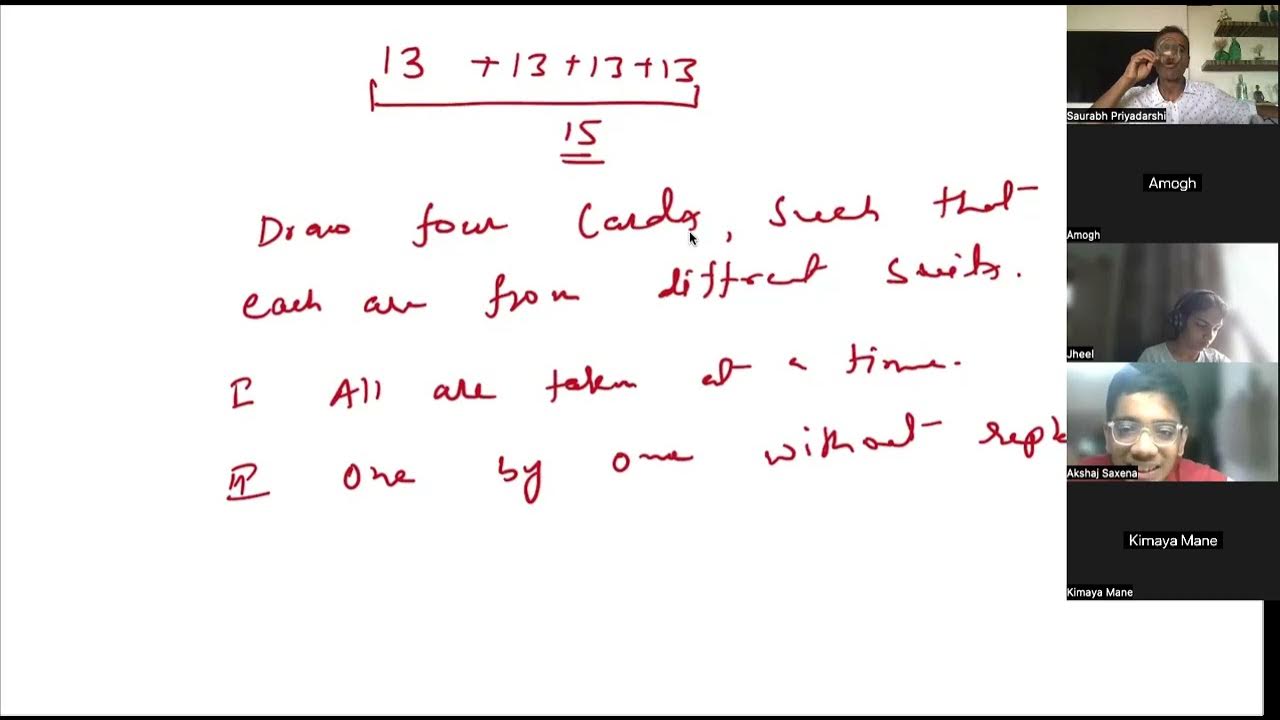 13 + 13 + 13 + 13
15
Draw four Cards, Such that
each are from diffrent Suits.
I All are taken at a time.
II One by one without repl
Saurabh Priyadarshi
Amogh
Amogh
Jheel
Akshaj Saxena
Kimaya Mane
Kimaya Mane